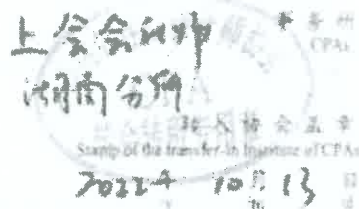 上会会计师 事务所
CPAs
河南分所
转入协会盖章
Stamp of the transfer-in Institute of CPAs
2022年 10月 13日